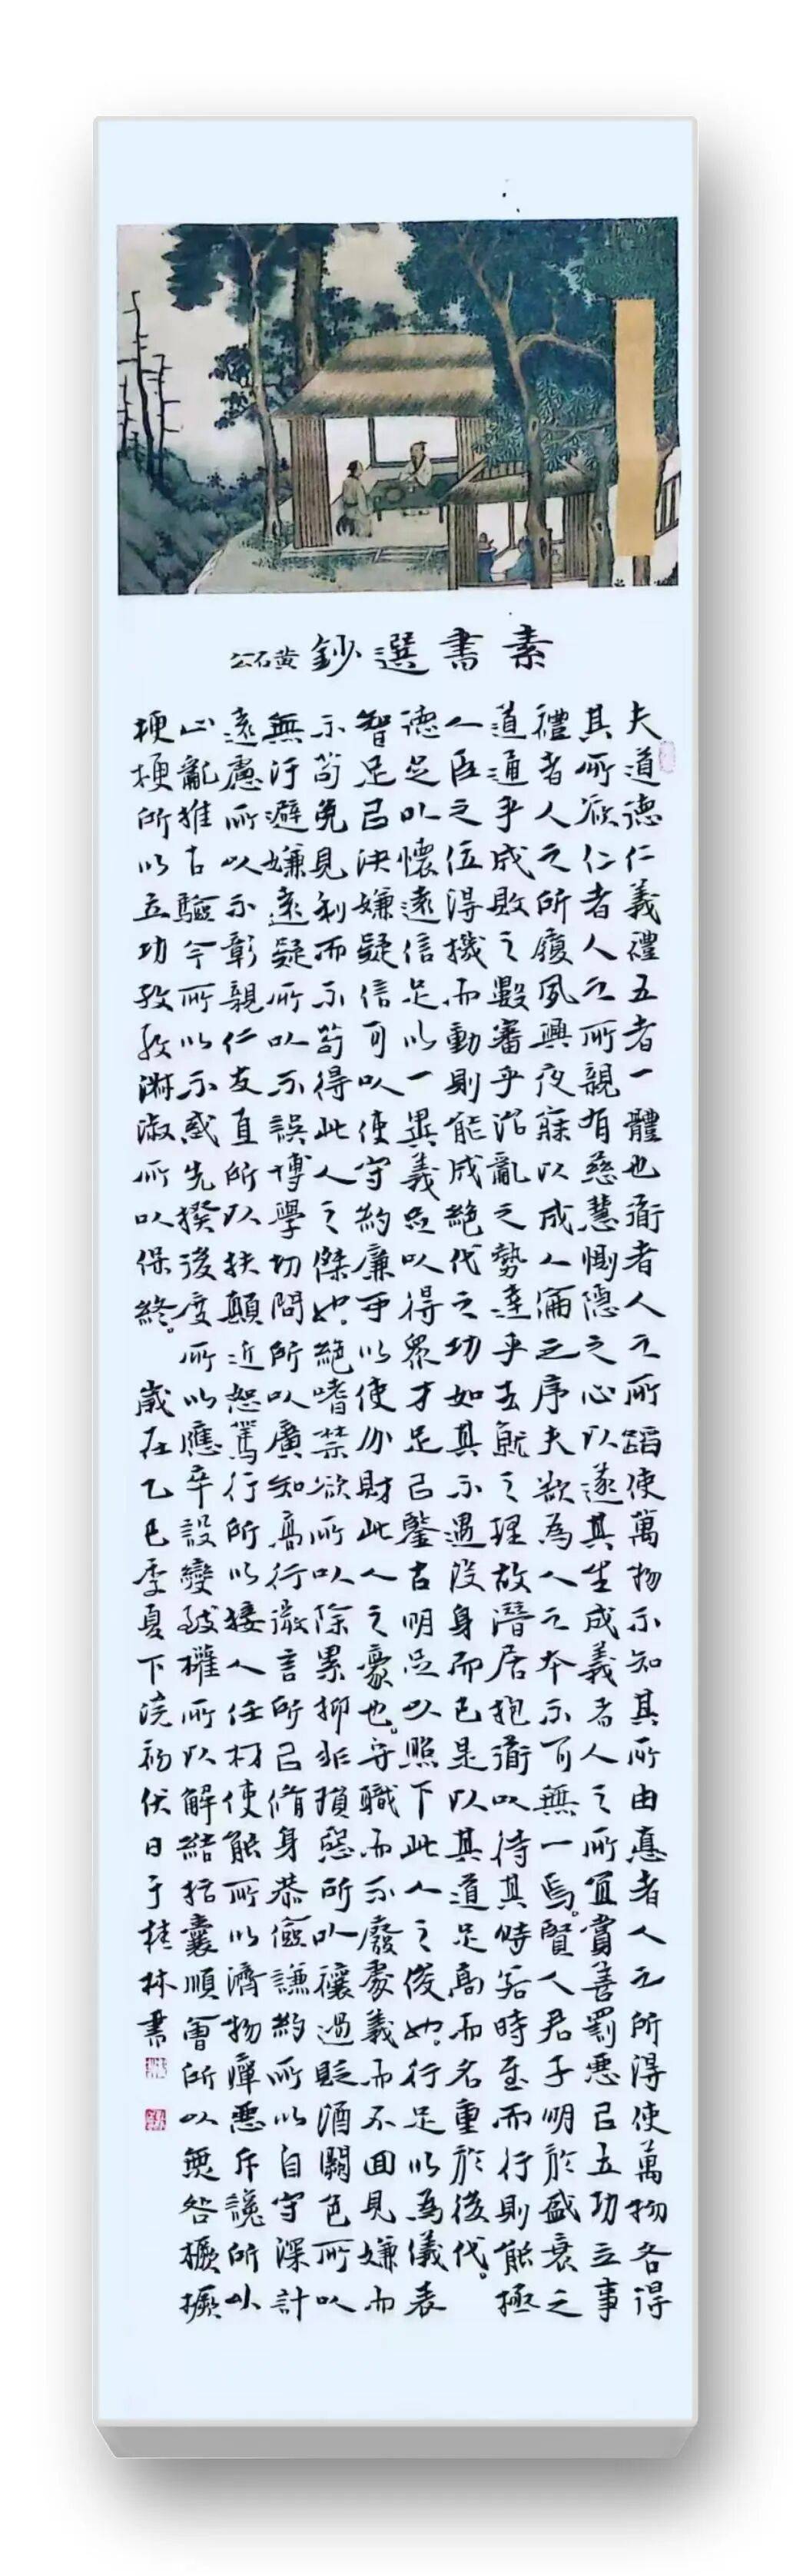 素書選鈔 黄石公
夫道德仁義禮五者一體也衜者人之所蹈使萬物不知其所由悳者人之所得使萬物各得
其所欲仁者人之所親有慈慧惻隱之心以遂其生成義者人之所宜賞善罰惡己立功立事
禮者人之所履夙興夜寐以成人倫之序夫欲為人之本不可無一焉。賢人君子明於盛衰之
道通乎成敗之數審乎治亂之勢達乎去就之理故潛居抱衜以待其時若時至而行則能極
人臣之位得機而動則能成絕代之功如其不遇沒身而已是以其道足高而名重於後代。
德足以懷遠信足以一異義足以得眾才足己鑒古明足以照下此人之俊也。行足以為儀表
智足己決嫌疑信可以使守約廉可以使分財此人之豪也。守職而不廢處義而不回見嫌而
不苟免見利而不苟得此人之傑也。絕嗜禁欲所以除累抑非損惡所以禳過貶酒闕色所以
無汙避嫌遠疑所以不誤博學切問所以廣知高行微言所己脩身恭儉謙約所以自守深計
遠慮所以不彰親仁友直所以扶顛近恕篤行所以接人任材使能所以濟物癉惡斥讒所以
止亂推古驗今所以不惑先揆後度所以應卒設變致權所以解結括囊順會所以無咎橛橛
梗梗所以立功孜孜淋淑所以保終。歲在乙巳季夏下浣初伏日于桂林書